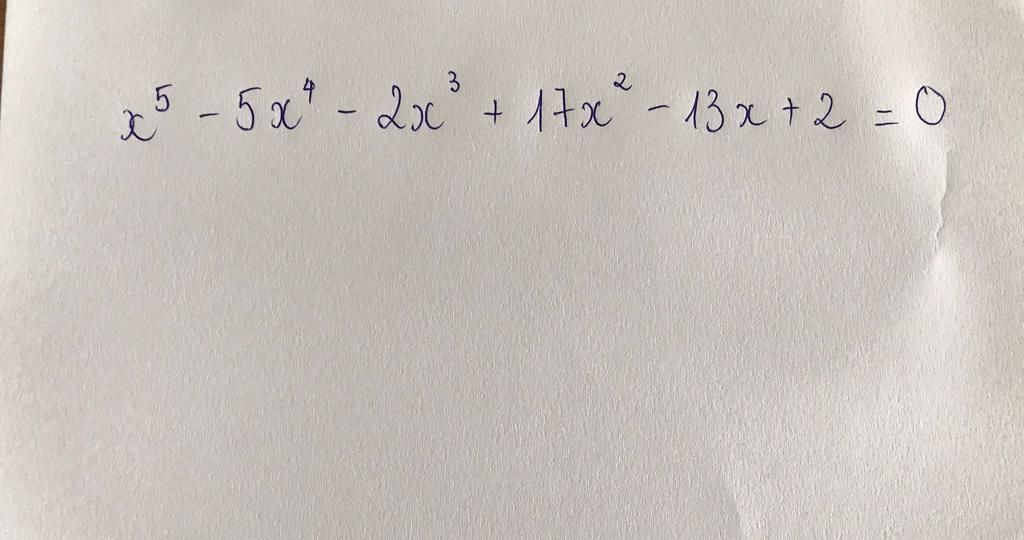 x⁵ - 5x⁴ - 2x³ + 17x² - 13x + 2 = 0